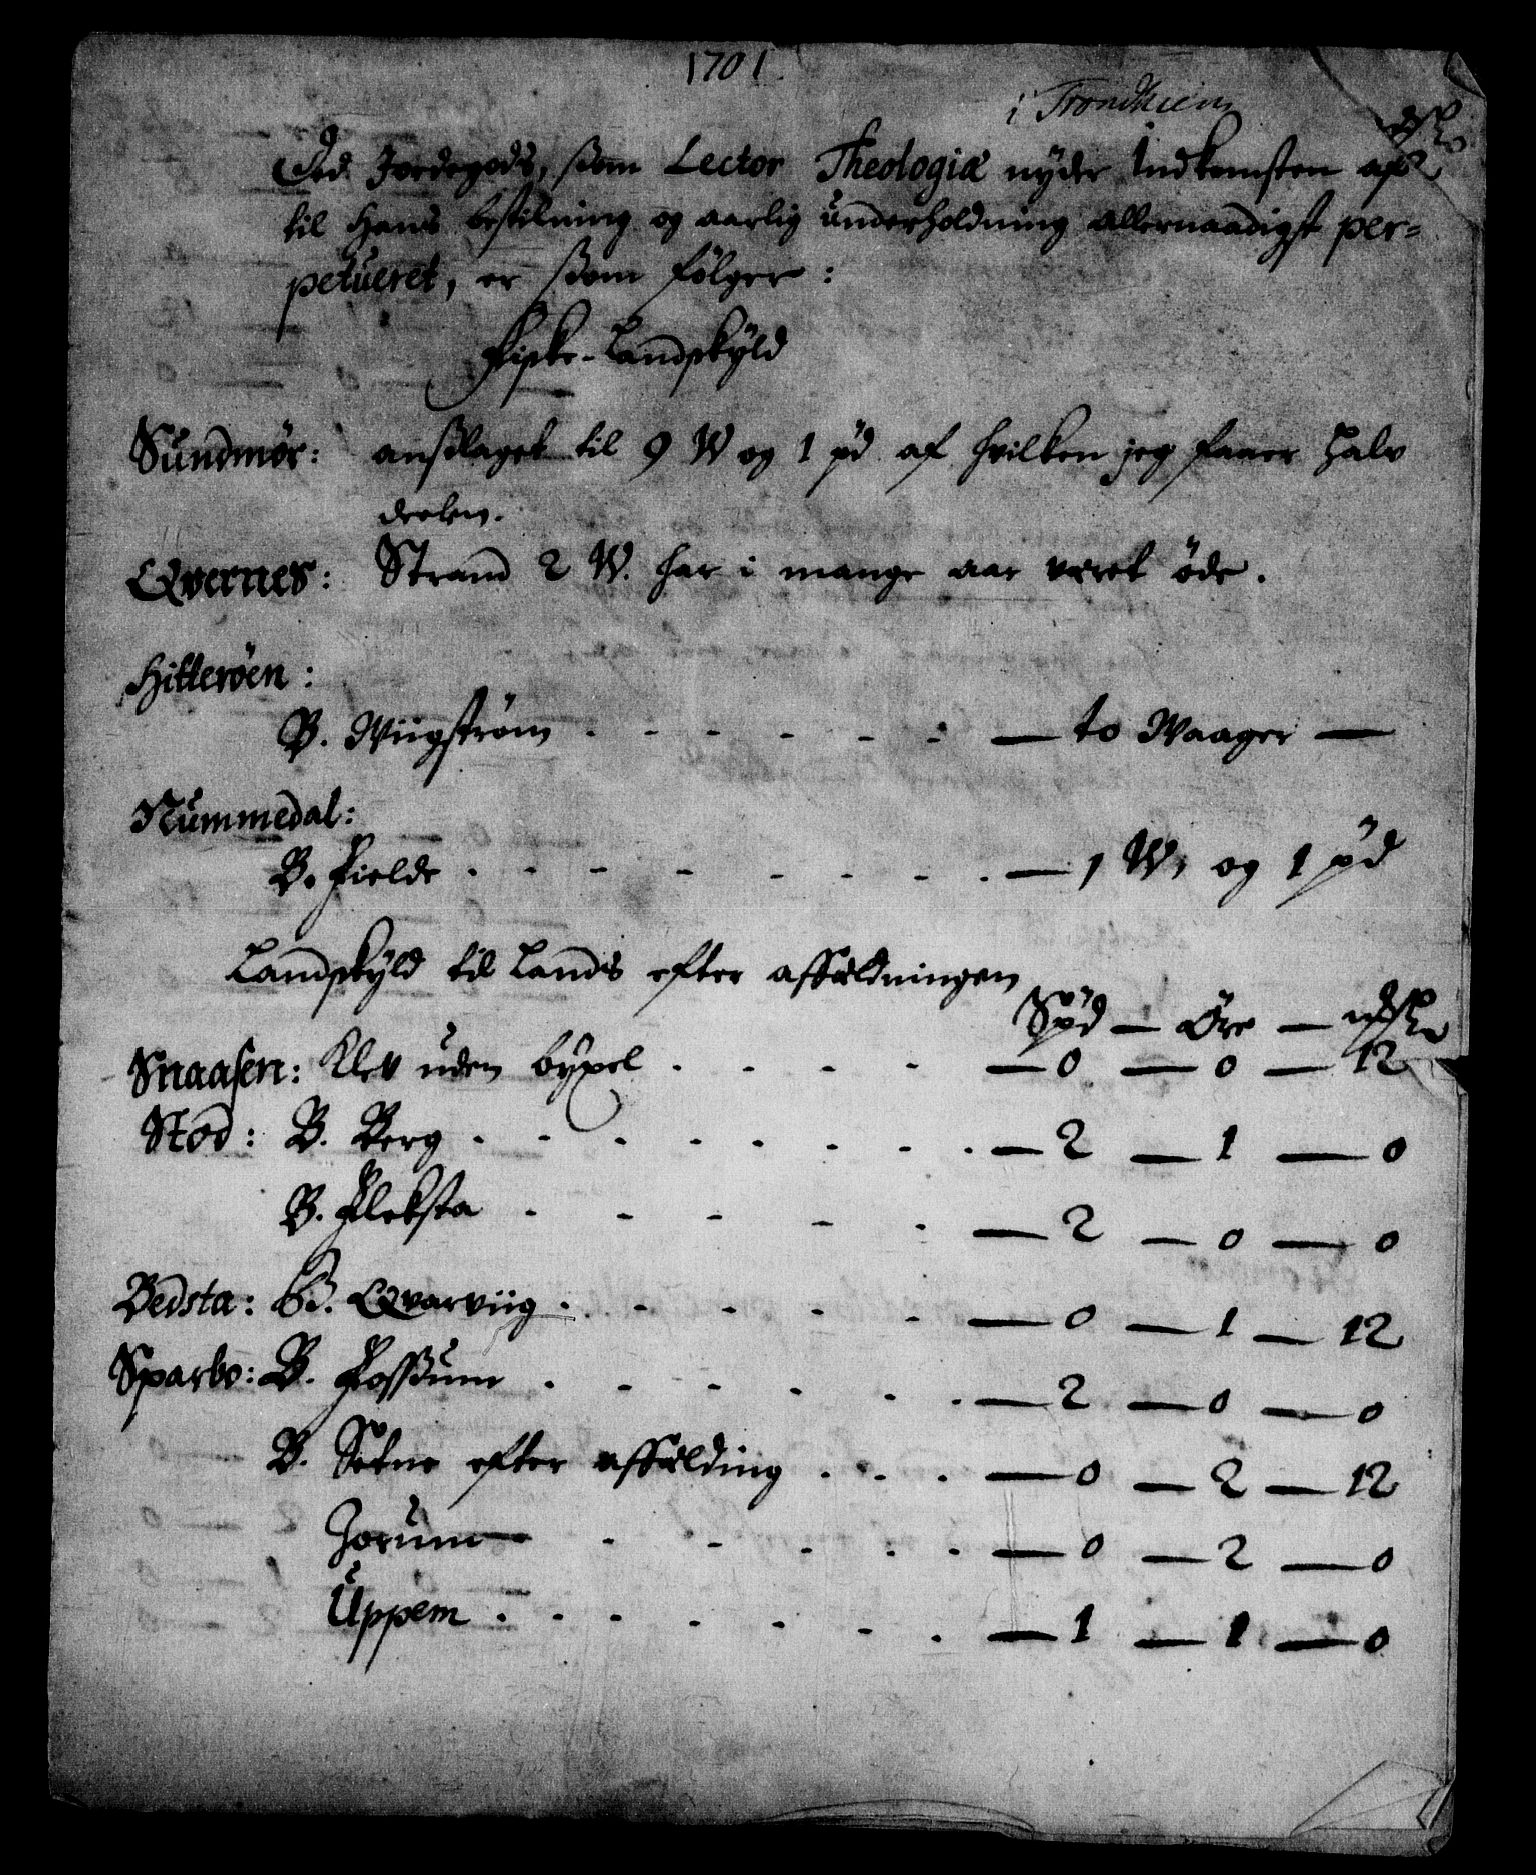 1701.
i Trondhiem
Ded Jordegods, ßom Lector Theologiæ nyder Indkomsten af
til Hans bestilning og aarlig ünderholdning allernaadigst per=
petueret, er ßom fölger:
Fiske-Landskÿld
Sundmör: anßlaget til 9 W og 1 pd af hvilken jeg faaer halv
deelen.
Qvernes: Strand 2 W. har i mange aar været öde.
Hitteröen:
B. Wiigström . . . . . . — to Waager —
Nummedal:
B. Fielde . . . . . . . . — 1 W, og 1 pd
Landskÿld til Lands efter affældningen
Spd — Öre —
Snaasen: Klev uden bÿxel . . . . — 0 — 0 — 12
Stod: B. Berg . . . . . . . . — 2 — 1 — 0
B. Fleksta . . . . . — 2 — 0 — 0
Bedsta: B. Qvarviig . . . . . — 0 — 1 — 12
Sparbo: B. Foßum . . . . . . — 2 — 0 — 0
B. Setne efter affælding . . . — 0 — 2 — 12
Jorum . . . . . — 0 — 2 — 0
Üppem . . . . . . . — 1 — 1 — 0